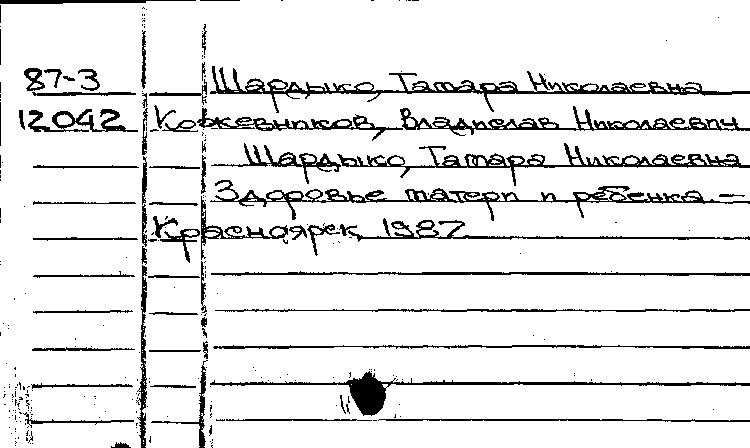 87-3 Шардыко, Тамара Николаевна
12042 Кожевников, Владислав Николаевич
Шардыко, Тамара Николаевна
Здоровье матери и ребенка. —
Красноярск, 1987